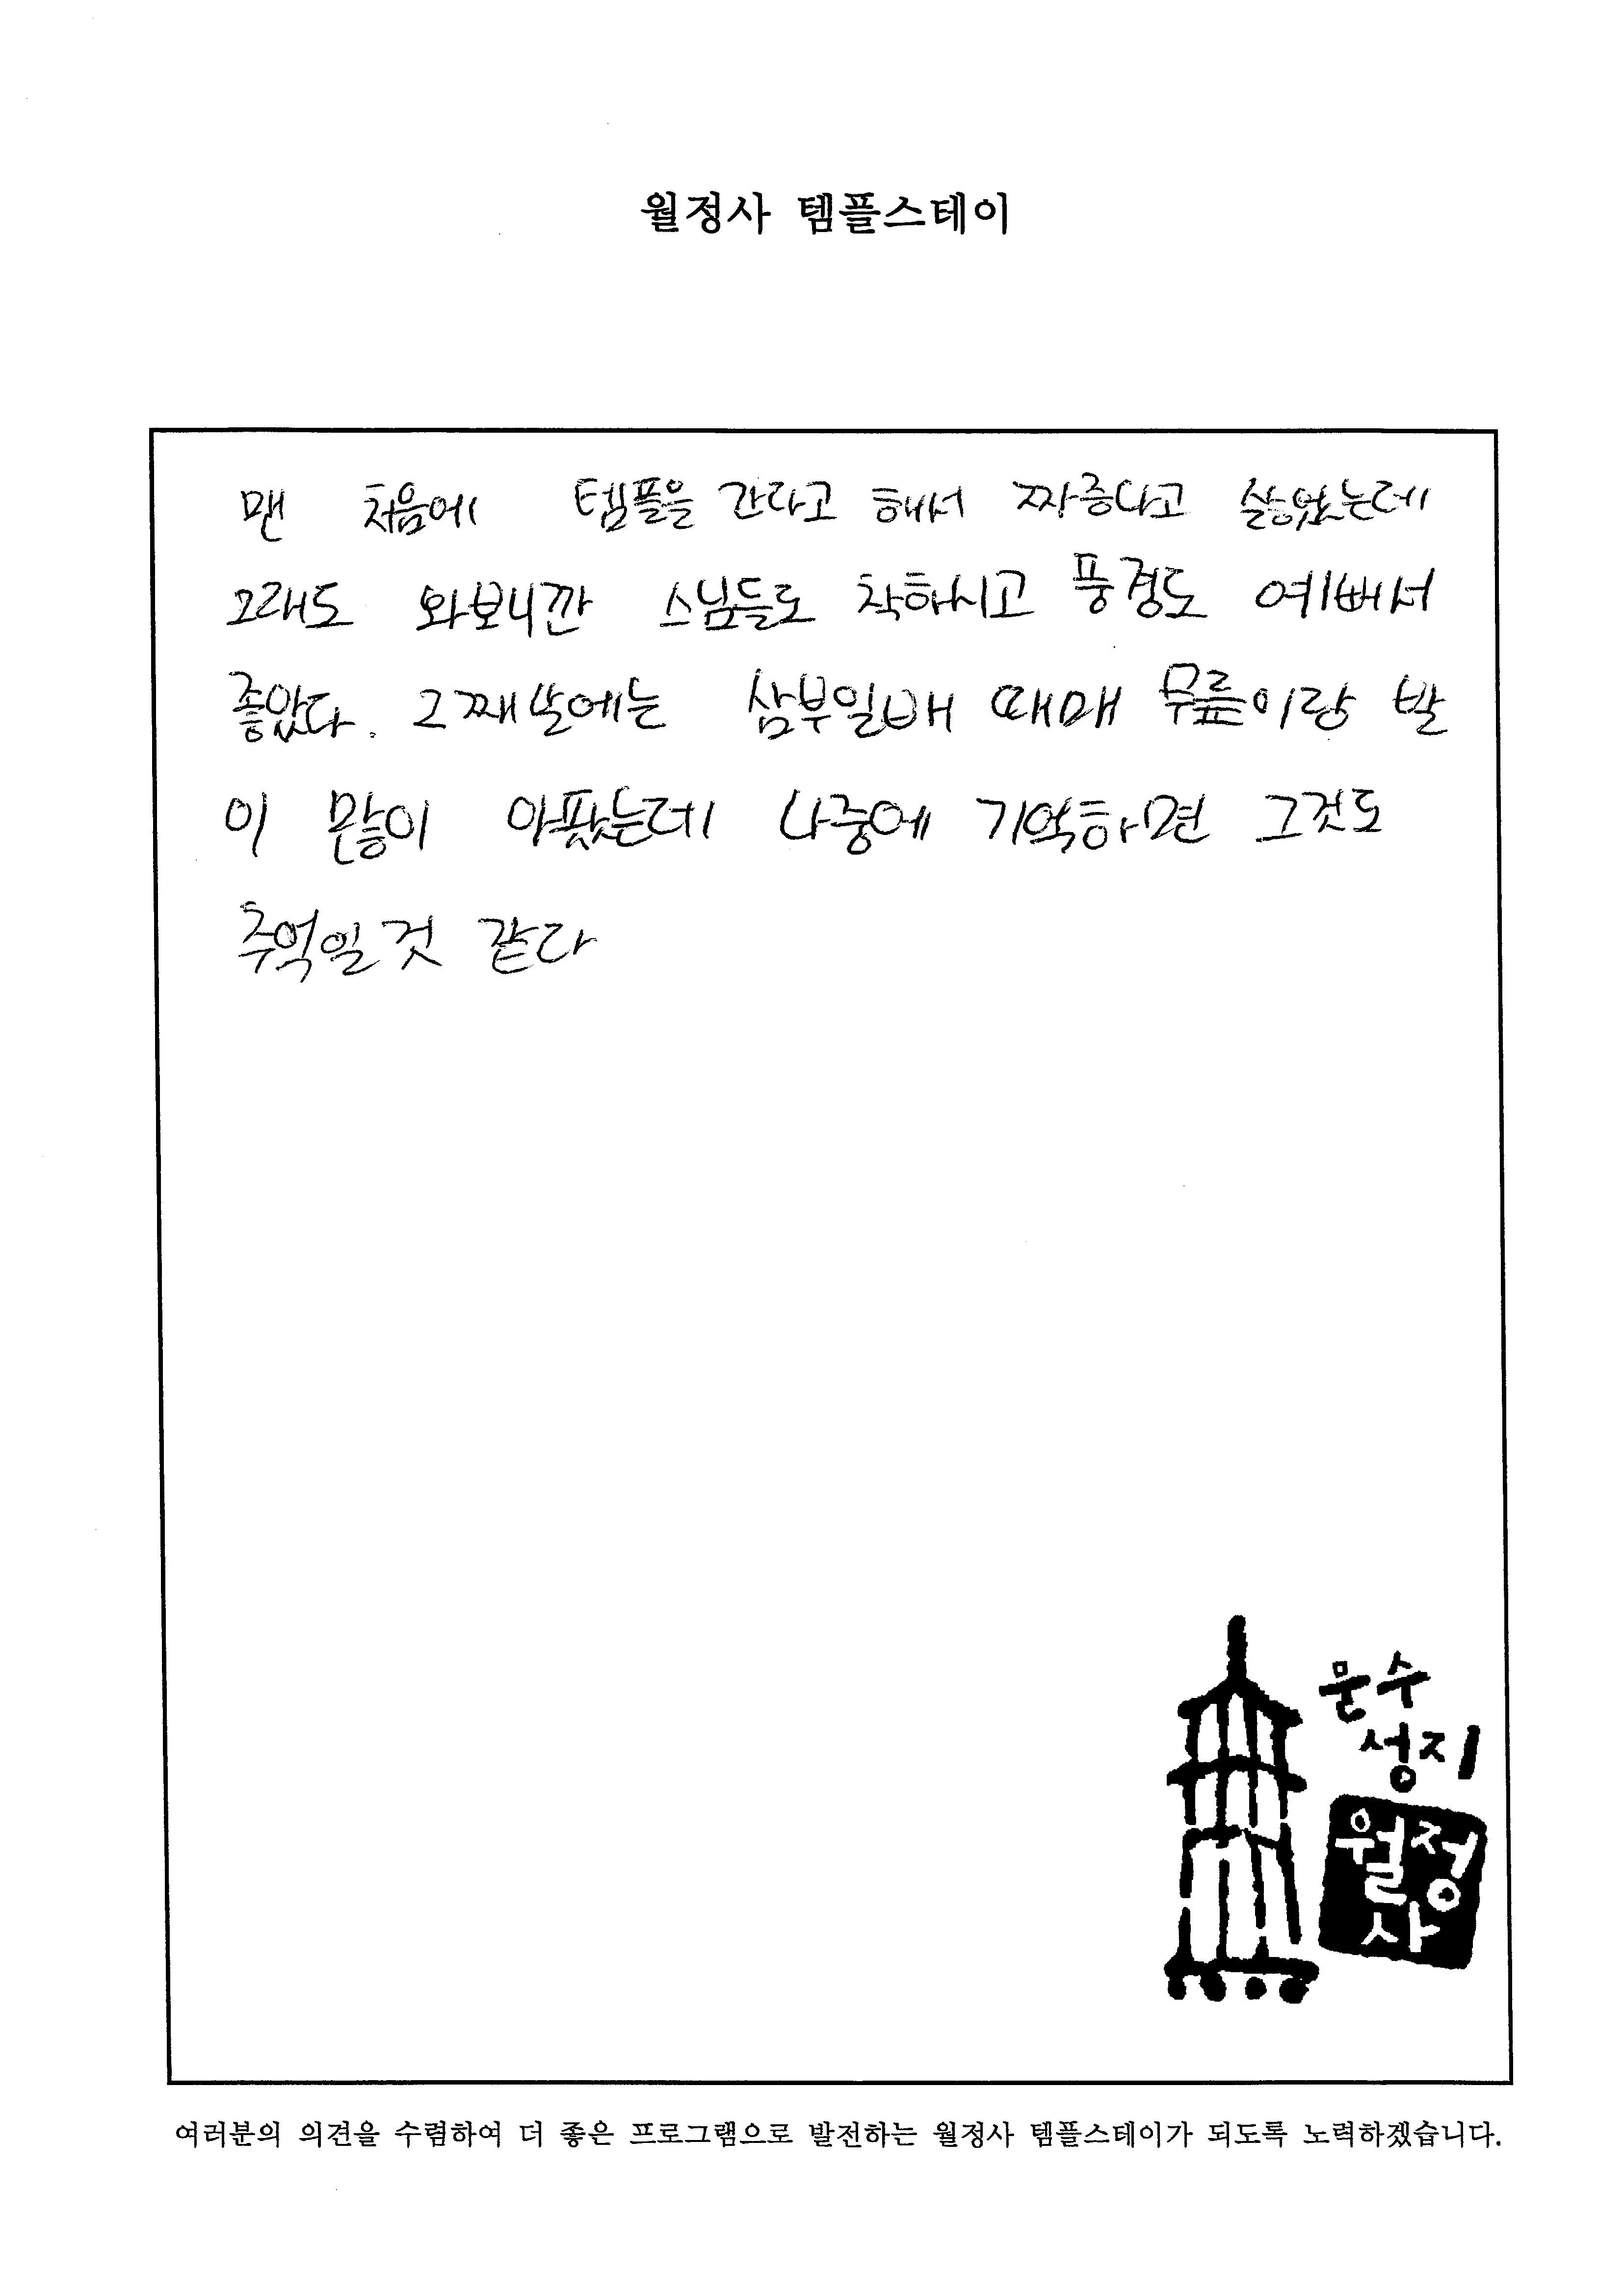 월정사 템플스테이
맨 처음에 템플을 간다고 해서 짜증다고 싫었는데
그래도 와보니깐 스님들도 착하시고 풍경도 예뻐서
좋았다. 2째날에는 삼부일배 때매 무릎이랑 발
이 많이 아팠는데 나중에 기억하면 그것도
추억일것 같다
문수
성지
월정
사
여러분의 의견을 수렴하여 더 좋은 프로그램으로 발전하는 월정사 템플스테이가 되도록 노력하겠습니다.